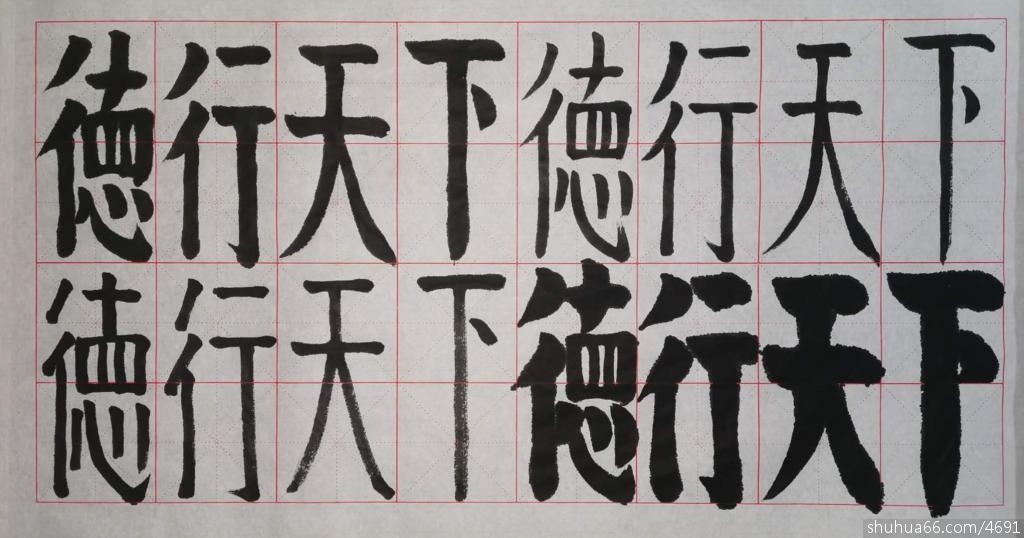 德行天下德行天下
德行天下德行天下
shuhua66.com/4691